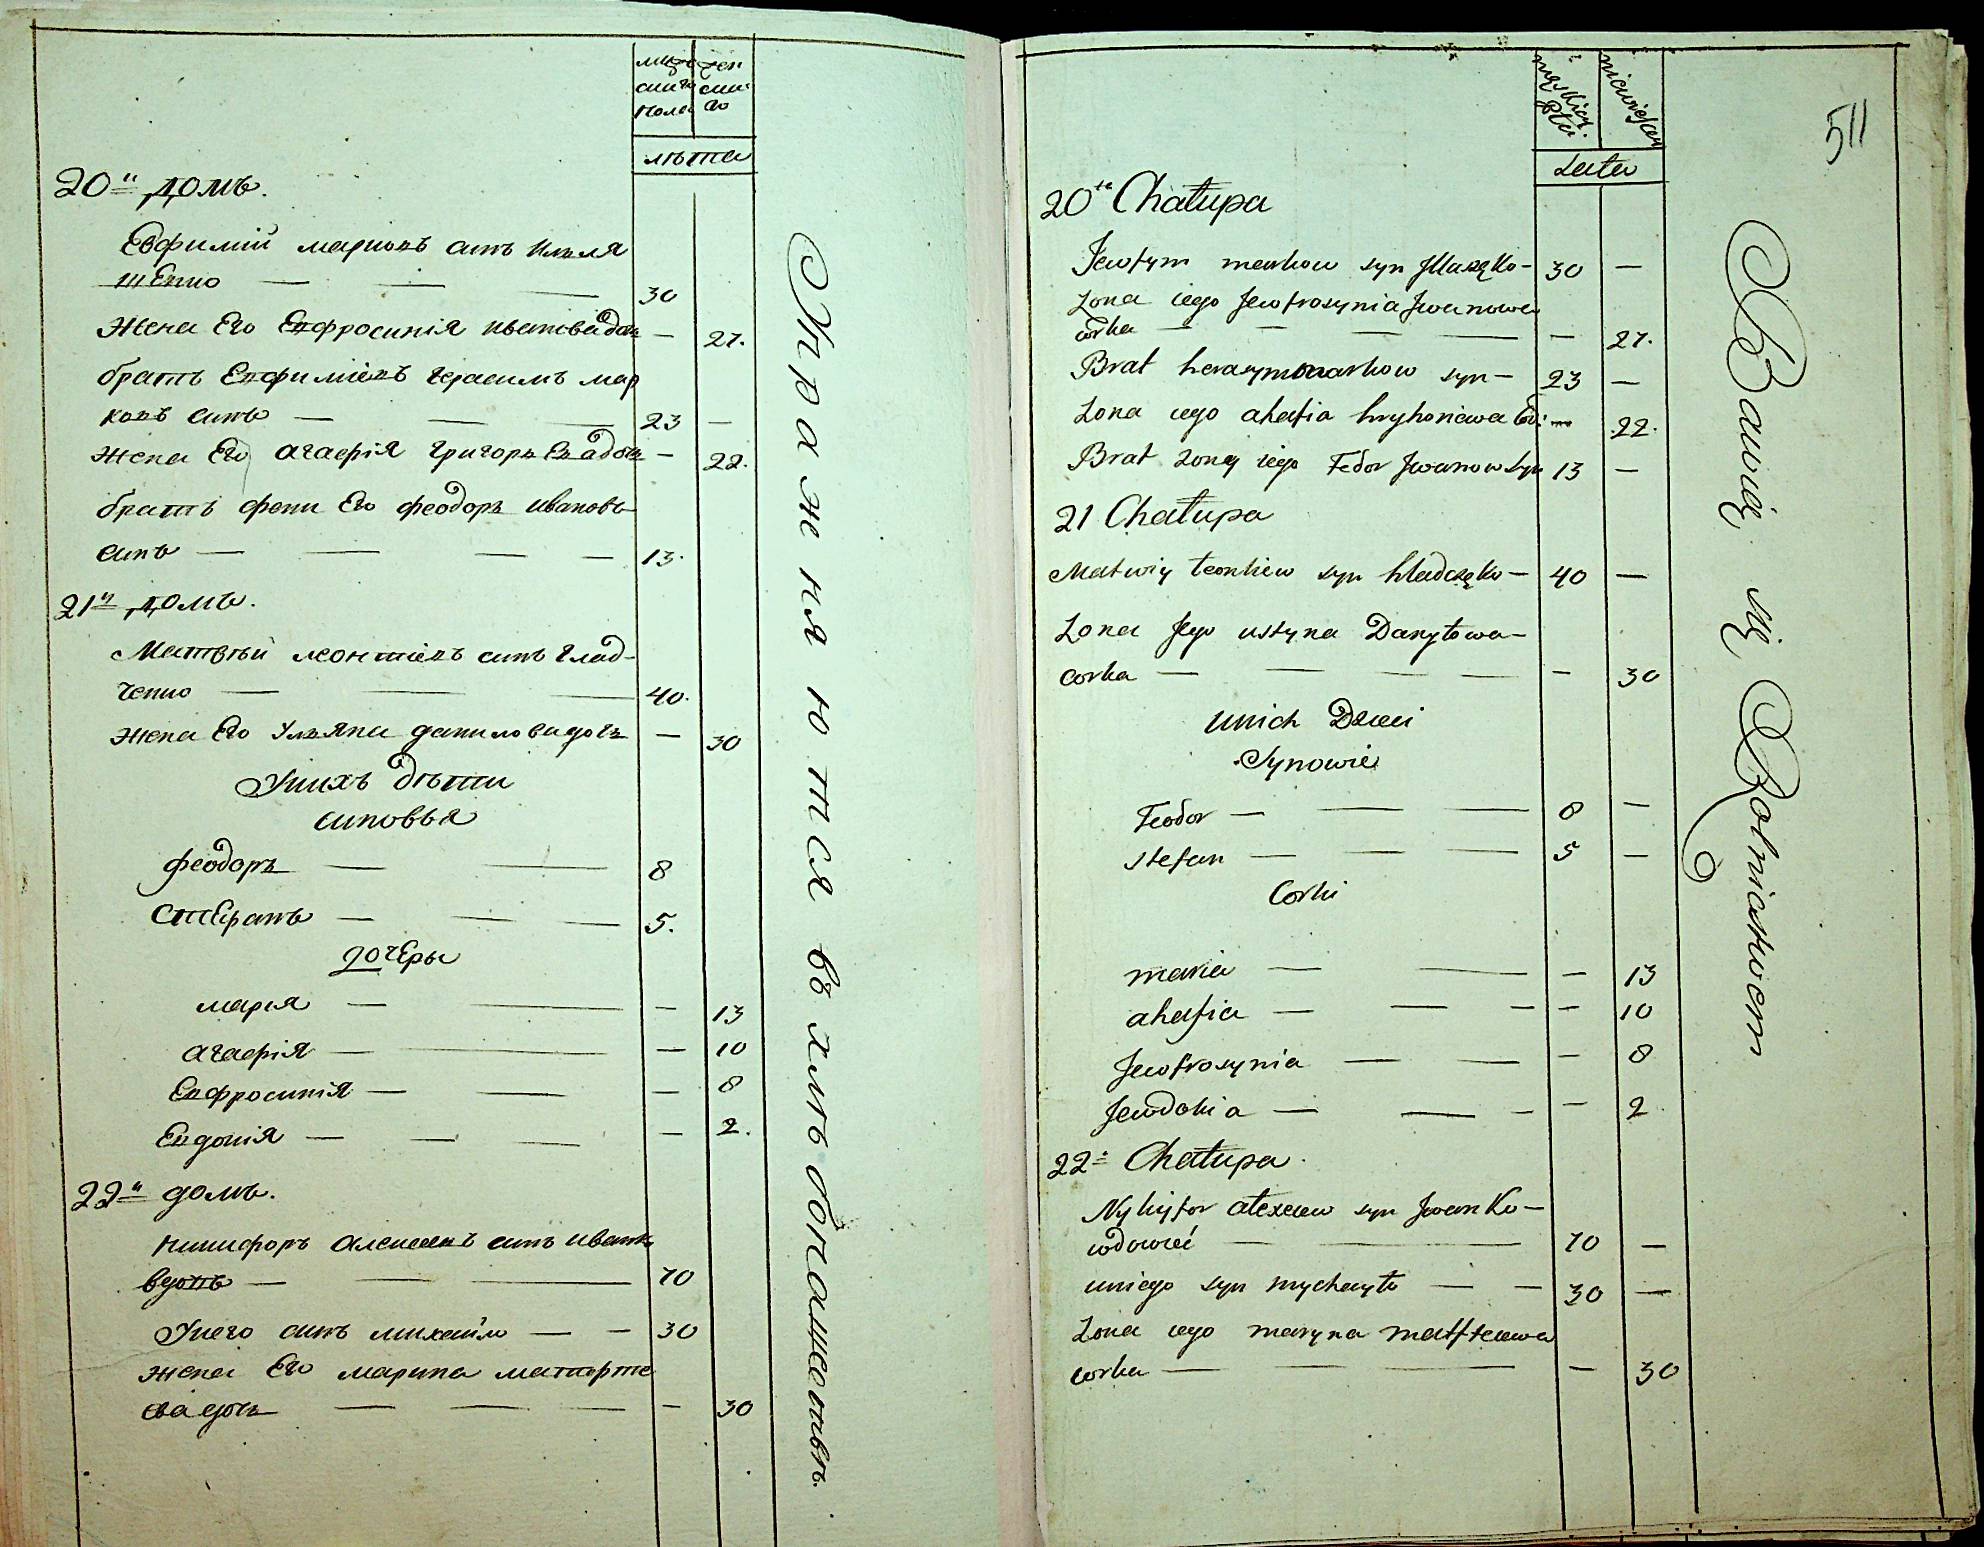 мужеска пола
женска го
лѣта
20й домъ.
Евфимій марковъ синъ Илья
щенко — — — 30
жена Его Евфросинія иванова дочь — 27.
братъ Евфиміевъ герасимъ мар
ковъ синъ — — — 23 —
жена Его агафія григорьева дочь — 22.
братъ жени Его феодоръ ивановъ
синъ — — — — 13.
21й домъ.
Матвѣй леонтіевъ синъ глад-
ченко — — — 40.
жена Его Ульяна данилова дочь — 30
У нихъ дѣти
синовья
феодоръ — — 8
Стефанъ — — — 5.
дочеры
марія — — — 13
агафія — — — 10
Евфросинія — — — 8
Евдокія — — — — 2.
22й домъ.
никифоръ алексѣевъ синъ иванко
вдовъ — — — 70
У него синъ михайло — — 30
жена Его марина матфѣе
ва дочь — — — — 30
Упражняются въ хлѣбопашествѣ.
511
męskiey Płci
niewieściey
Lata
20ta Chałupa
Jewfym markow syn Jllaszęko — 30 —
Zona iego Jewfrosynia Jwanowa
corka — — — — 27.
Brat herasym markow syn — 23 —
Zona iego ahafia hryhoriewa Cor: — 22.
Brat Zony iego Fedor Jwanow Syn 13 —
21 Chałupa
Matwiy leontiew syn hladczęko — 40 —
Zona Jego ustyna Danyłowa —
corka — — — — — 30
U nich Dzieci
Synowie
Feodor — — — 8 —
Stefan — — — — 5 —
Corki
maria — — — 13
ahafia — — — — 10
Jewfrosynia — — — 8
Jewdokia — — — — 2
22a Chałupa.
Nykyfor alexiew syn Jwanko —
wdowieć — — 70 —
u niego syn mychayło — — 30 —
Zona iego maryna matfiewa
corka — — — — 30
Bawią się Rolnictwem